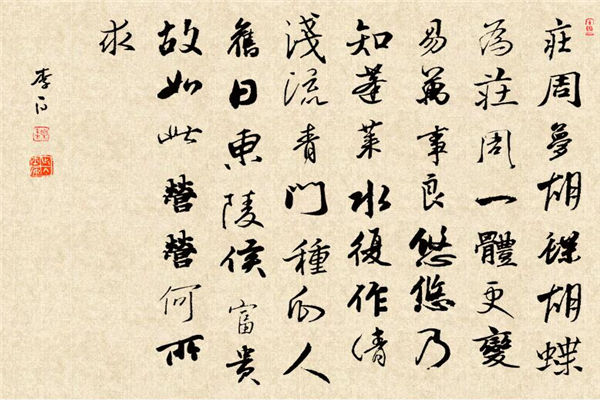 庄周夢胡蝶胡蝶
為莊周一體更變
易萬事良悠悠乃
知蓬萊水復作清
淺流青門種瓜人
舊日東陵侯富貴
故如此營營何所
求